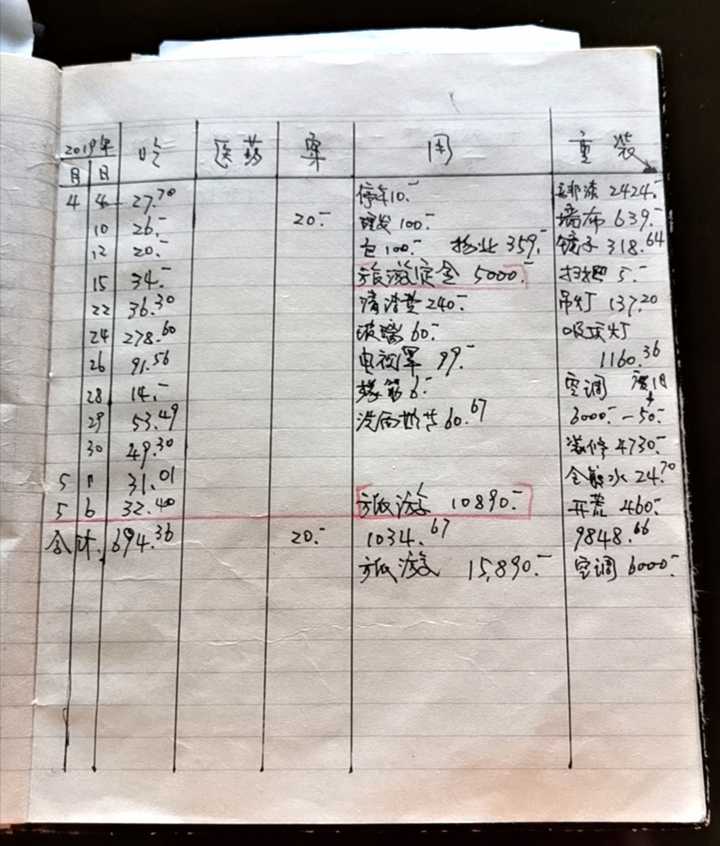 2019年 吃 医药 用 重装
月 日
4 4 27.70 停车10.- 油漆 2424.-
10 26.- 20.- 理发 100.- 墙布 639.-
12 20.- 包 100.- 物业 359.- 镜子 318.64
15 34.- 旅游定金 5000.- 扫把 5.-
22 36.30 清洁费 240.- 吊灯 137.20
24 278.60 玻璃 60.- 吸顶灯
26 91.56 电视罩 99.- 1160.36
28 14.- 6.- 空调 废旧
29 53.49 60.67 6000.- -50.-
30 49.30 4730.-
5 31.01 水 24.70
5 6 32.40 旅游 10890.- 开荒 460.-
合计. 694.36 20.- 1034.67 9848.66
旅游 15,890.- 空调 6000.-